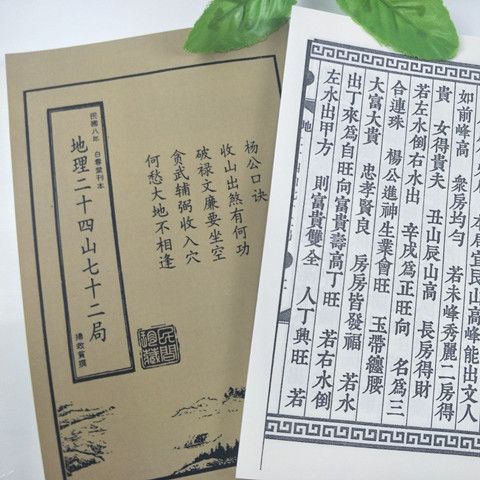 民國八年 白雪叢刊本
地理二十四山七十二局
楊救貧撰
杨公口诀
收山出煞有何功
破禄文廉要坐空
贪武辅弼收入穴
何愁大地不相逢
民間
珍藏
艮山高峰能出文人
如前峰高 衆房均勻 若未峰秀麗二房得
貴 女得貴夫 丑山辰山高 長房得財
若左水倒右水出 辛戌爲正旺向 名爲三
合連珠 楊公進神生業會旺 玉帶纏腰
大富大貴 忠孝賢良 房房皆發福 若水
出丁來爲自旺向富貴壽高丁旺 若右水倒
左水出甲方 則富貴雙全 人丁興旺 若
地